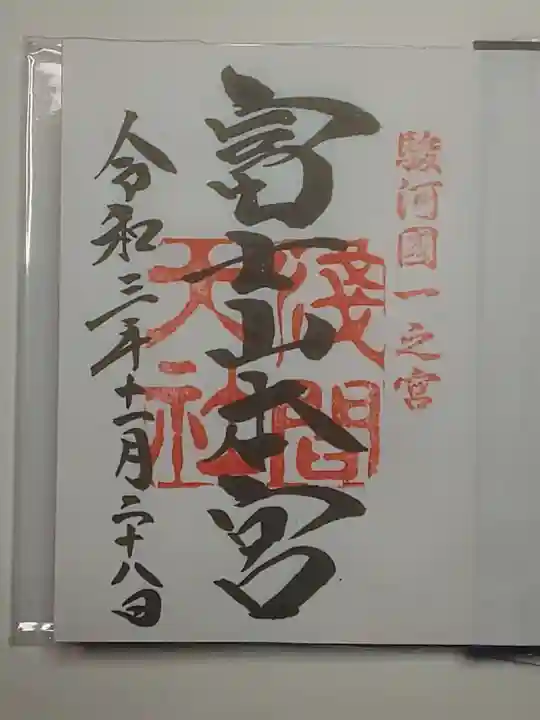 駿河國一之宮
富士山本宮
浅間
大社
令和三年十一月二十八日